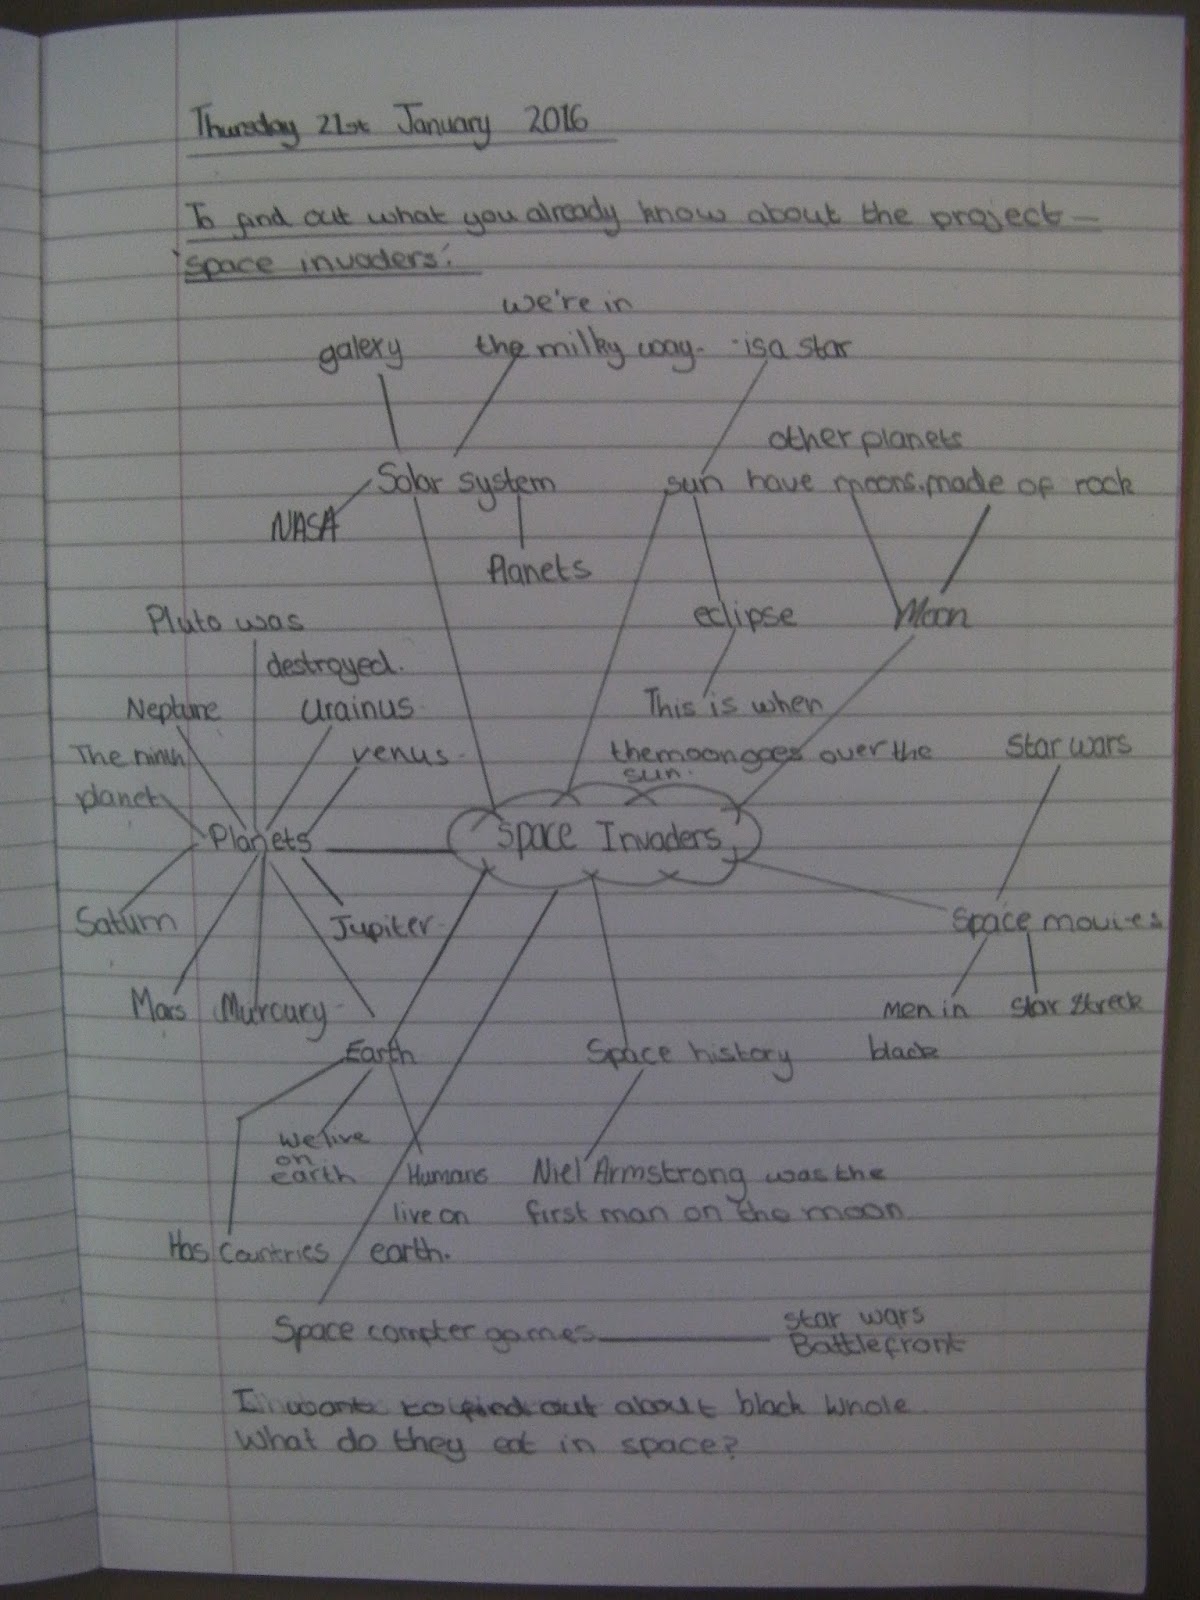 Thursday 21st January 2016
To find out what you already know about the project -
'space invaders'.
we're in
galexy the milky way. · is a star
other planets
Solar system sun have moons. made of rock
NASA
Planets
Pluto was eclipse Moon
destroyed.
Neptune Urainus This is when
The ninth venus the moon goes over the Star wars
planet sun.
Planets Space Invaders
Saturn Jupiter Space movies
Mars Murcury men in Star Streck
Earth Space history black
we live
on
earth Humans Niel Armstrong was the
live on first man on the moon
Has Countries earth.
Space compter games star wars
Battlefront
I want to find out about black whole.
What do they eat in space?